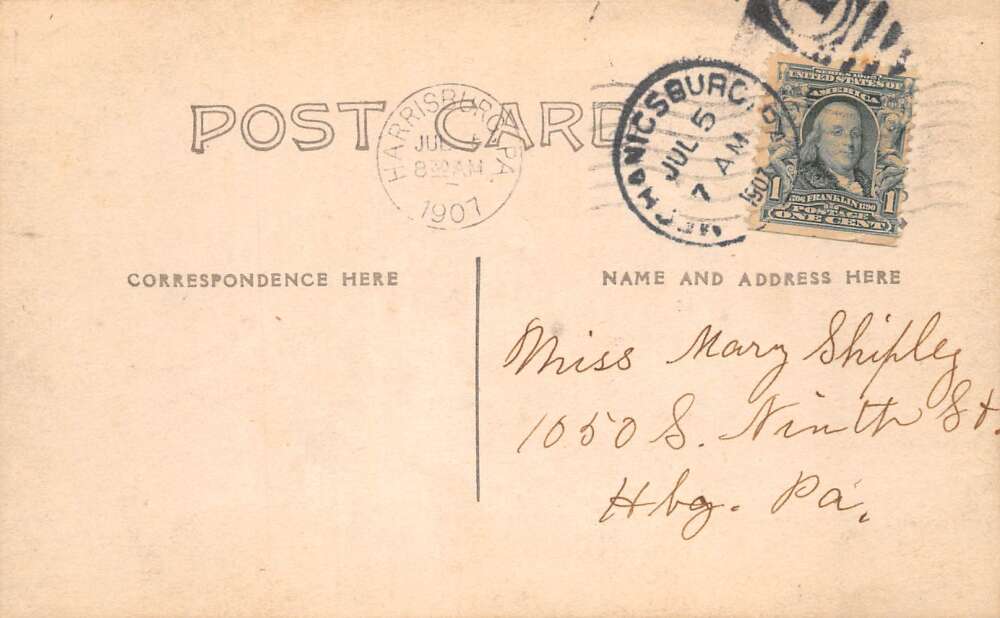 POST CARD
HARRISBURG, PA.
JUL
8 30 AM
1907
MECHANICSBURG, PA.
JUL 5
7 AM
1907
SERIES 1902
UNITED STATES OF
AMERICA
1 1
1706 FRANKLIN 1790
POSTAGE
ONE CENT
CORRESPONDENCE HERE
NAME AND ADDRESS HERE
Miss Mary Shipley
1050 S. Ninth St.
Hbg. Pa.